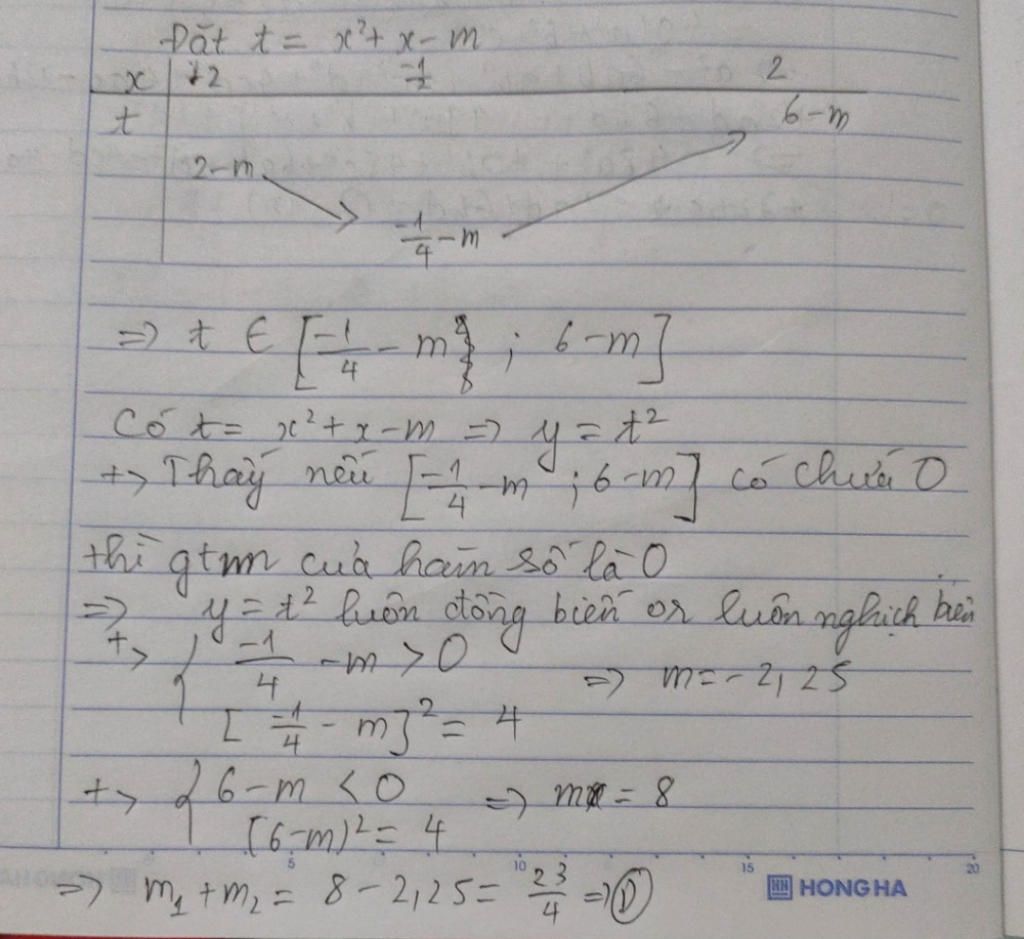 Đặt t = x² + x - m
x -2 -1/2 2
t 6-m
2-m
-1/4 - m
=> t ∈ [-1/4 - m ; 6-m]
Có t = x² + x - m => y = t²
+> Thấy nếu [-1/4 - m ; 6-m] có chứa 0
thì gtnn của hàm số là 0
=> y = t² luôn đồng biến or luôn nghịch biến
+> { -1/4 - m > 0
[-1/4 - m]² = 4 => m = -2,25
+> { 6-m < 0 => m = 8
(6-m)² = 4
5 10 15 20
=> m₁ + m₂ = 8 - 2,25 = 23/4 => D
HONG HA